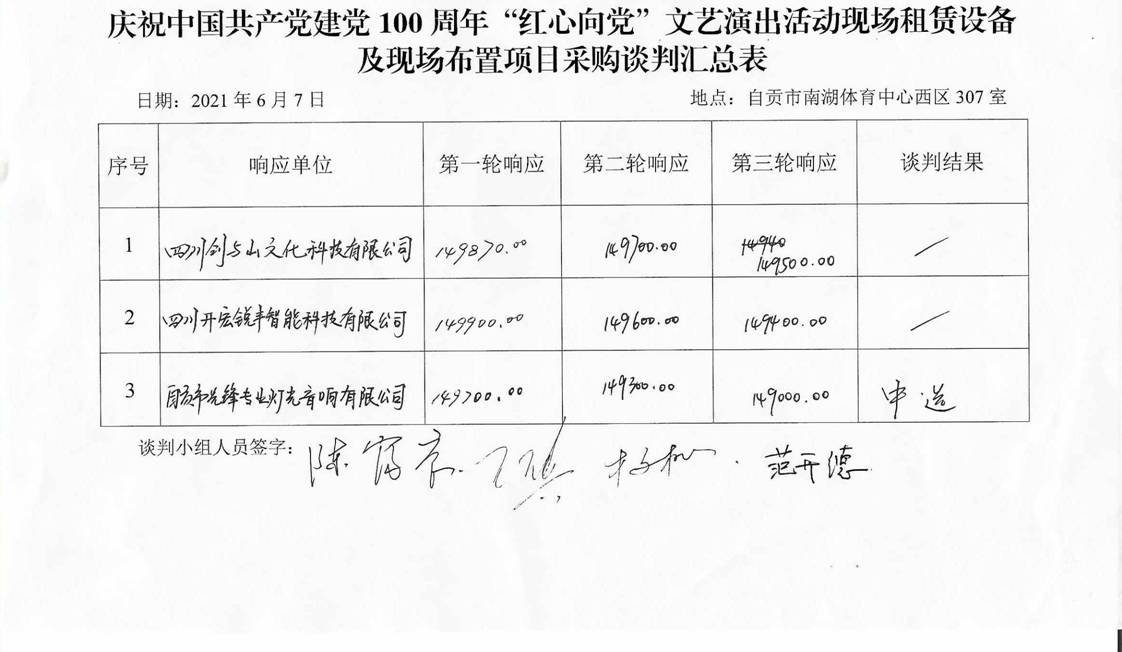 庆祝中国共产党建党 100 周年“红心向党”文艺演出活动现场租赁设备
及现场布置项目采购谈判汇总表
日期：2021 年 6 月 7 日 地点：自贡市南湖体育中心西区 307 室
序号 响应单位 第一轮响应 第二轮响应 第三轮响应 谈判结果
1 四川创与山文化科技有限公司 149870.00 149700.00 14940 149500.00 /
2 四川开宏锐丰智能科技有限公司 149900.00 149600.00 149400.00 /
3 自贡市先锋专业灯光音响有限公司 149700.00 149300.00 149000.00 中选
谈判小组人员签字： 范开德